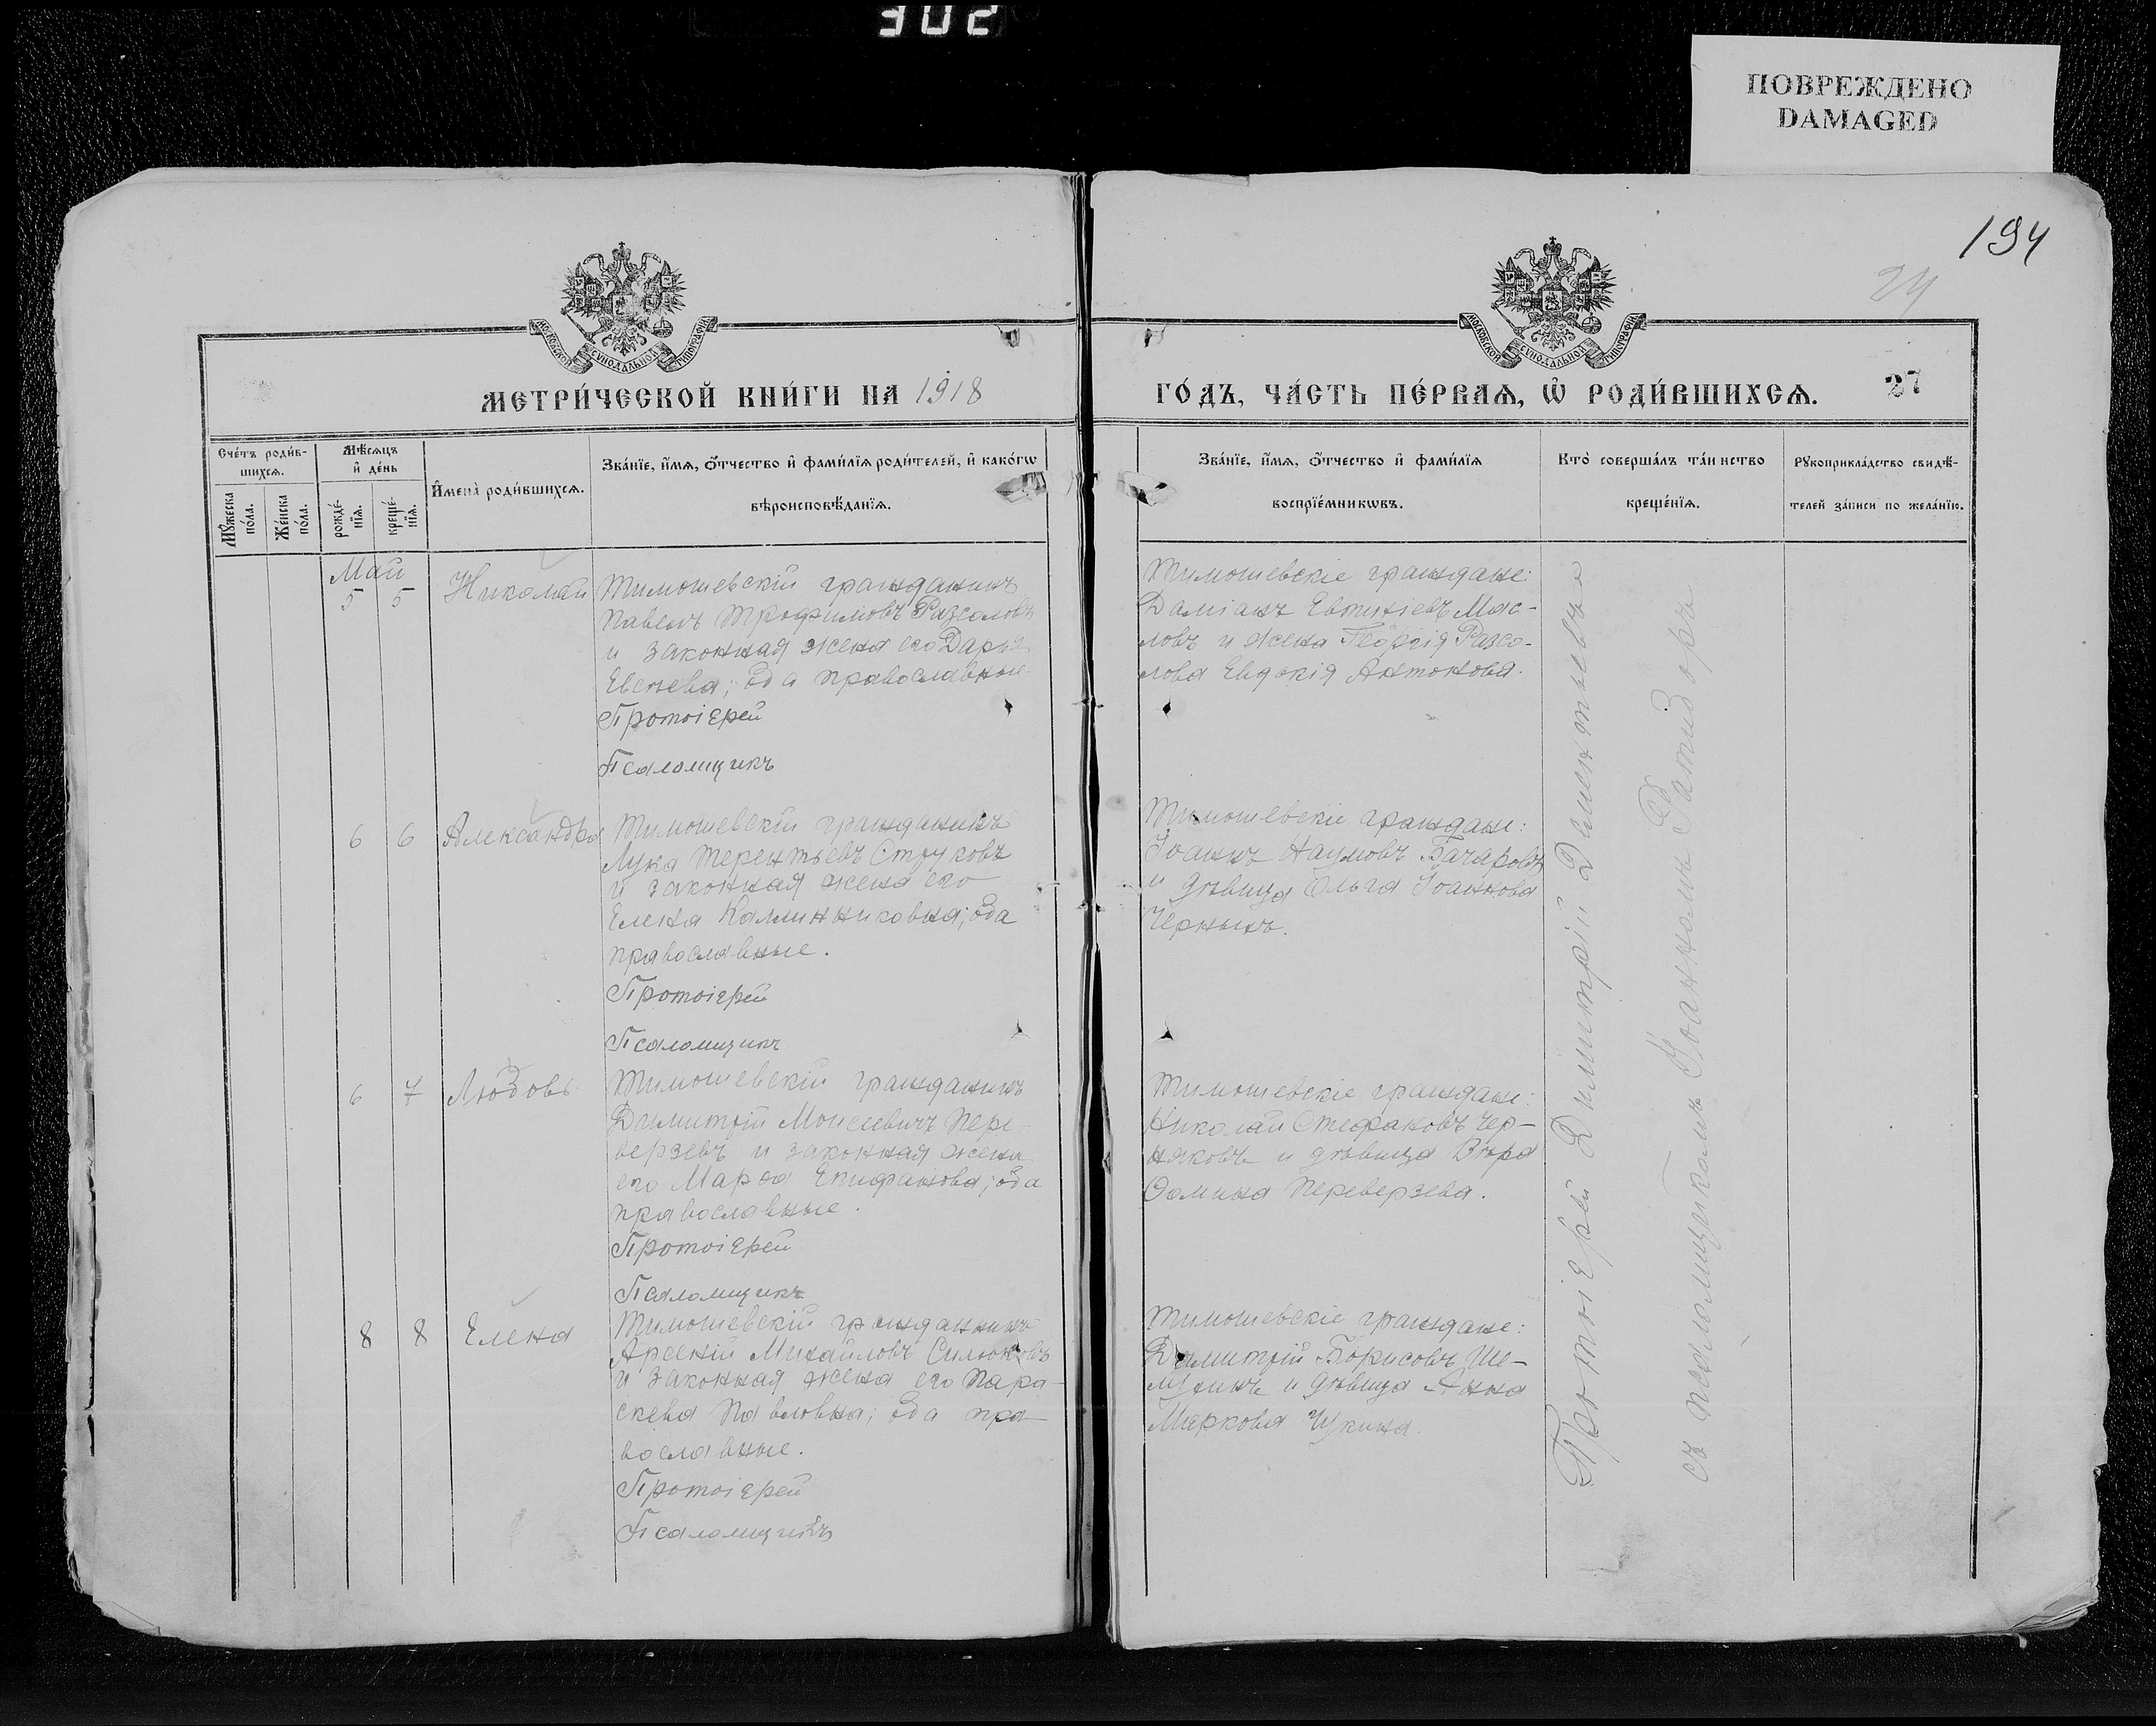 302
ПОВРЕЖДЕНО
DAMAGED
194
24
МОСКОВСКОЙ СѴНОДАЛЬНОЙ ТИПОГРАФІИ
МОСКОВСКОЙ СѴНОДАЛЬНОЙ ТИПОГРАФІИ
МЕТРИ́ЧЕСКОЙ КНИ́ГИ НА 1918
ГО́ДЪ, ЧА́СТЬ ПЕ́РВАѦ, Ѡ҆ РОДИ́ВШИХСѦ.
27
Сче́тъ роди́в-
шихсѧ.
Мꙋ́жеска
по́ла.
Же́нска
по́ла.
Мѣ́сѧцъ
и҆ де́нь
рожде́-
нїѧ.
креще́-
нїѧ.
И҆мена̀ роди́вшихсѧ.
Зва́нїе, и҆́мѧ, ѻ҆́тчество и҆ фами́лїѧ роди́телей, и҆ како́гѡ
вѣроисповѣ́данїѧ.
Зва́нїе, и҆́мѧ, ѻ҆́тчество и҆ фами́лїѧ
воспрїе́мникѡвъ.
Кто̀ соверша́лъ та́инство
креще́нїѧ.
Рꙋкоприкла́дство свидѣ́-
телей за́писи по жела́нїю.
Май
5 5 Николай
Тимошевскій гражданинъ
Павелъ Трофимовъ Разсоловъ
и законная жена его Дарья
Евсѣева; оба православные.
Протоіерей
Псаломщикъ
Тимошевскіе граждане:
Даміанъ Евтихіевъ Мас-
ловъ и жена Георгія Разсо-
лова Евдокія Антонова.
6 6 Александра
Тимошевскій гражданинъ
Лука Терентьевъ Струковъ
и законная жена его
Елена Каллинниковна; оба
православные.
Протоіерей
Псаломщикъ
Тимошевскіе граждане:
Іоаннъ Наумовъ Бочаровъ
и дѣвица Ольга Іоаннова
Черныхъ.
6 7 Любовь
Тимошевскій гражданинъ
Димитрій Моисеевичъ Пере-
верзевъ и законная жена
его Марѳа Епифанова; оба
православные.
Протоіерей
Псаломщикъ
Тимошевскіе граждане:
Николай Стефановъ Чер-
няковъ и дѣвица Вѣра
Ѳомина Переверзева.
8 8 Елена
Тимошевскій гражданинъ
Арсеній Михайловъ
и законная жена его Пара-
скева Павловна; оба пра-
вославные.
Протоіерей
Псаломщикъ
Тимошевскіе граждане:
Димитрій Борисовъ Ше-
и дѣвица Анна
Маркова
Протоіерей Димитрій Дементьевъ
съ псаломщикомъ Іоанномъ